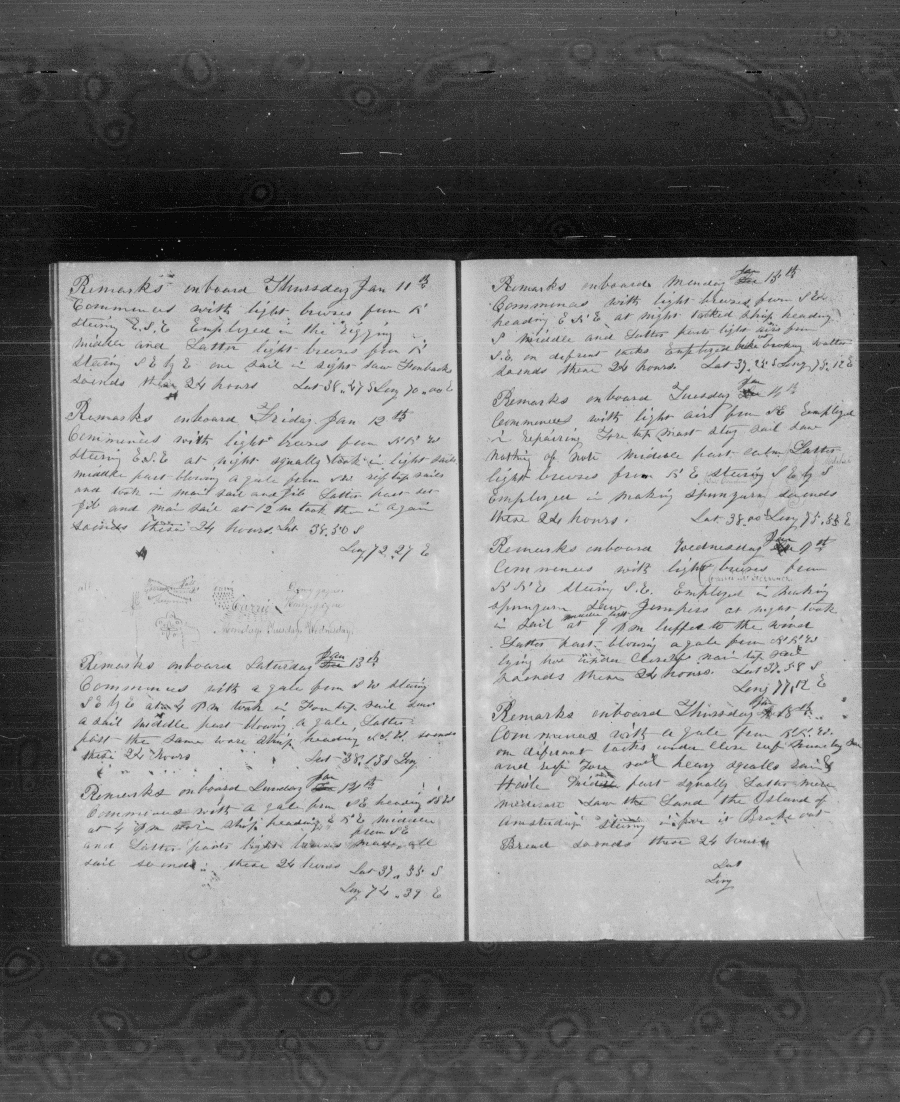 Remarks onboard Thursday Jan 11th
Commences with light breezes from N
stering E.S.E Employed in the rigging
middle and Latter light breezes from N
stering S E by E one sail in sight saw Finbacks
soends these 24 hours Lat 38.47 S Long 70.00 E
Remarks onboard Friday Jan 12th
Commences with light breezes from N N W
stering E.S.E at night squally took in light sails
middle part blowing a gale from NW reef top sails
and took in main sail and jib Latter part set
jib and main sail at 12 m took them in again
soends these 24 hours Lat 38.50 S
Long 72.27 E
all
Monday Tuesday Wednesday
Remarks onboard Saturday Jan 13th
Commences with a gale from S W stering
S E by E at 4 P M took in Fore top sail saw
a sail middle part blowing a gale Latter
part the same wore ship heading soends
these 24 hours Lat 38.35 Long
Remarks onboard Sunday Jan 14th
Commences with a gale from S E heading
at 4 P M wore ship heading E N E middle
from S E
and Latter parts light breezes all
sail soends these 24 hours Lat 37.35 S
Long 74.39 E
Remarks onboard Monday Jan 15th
Commences with light breezes from
heading E N E at night tacked ship heading
S middle and Latter parts light airs from
S.E. on defrent tacks Employed broking
soends these 24 hours. Lat 37.25 S Long 75.12 E
Remarks onboard Tuesday Jan
Commences with light airs from Employed
in repairing Fore top mast stay sail saw
nothing of note middle part calm Latter
light breezes from N E stering S E by S
Employed in making spunyarn soends
these 24 hours. Lat 38.00 S Long 75.55 E
Remarks onboard Wednesday Jan
Commences with light breezes from
N N E stering S.E. Employed in making
spunyarn Saw Jumpers at night took
in sail at 9 P M luffed to the wind
Latter part blowing a gale from N N W
lying hove under Close main top sail
soends these 24 hours. Lat 37.58 S
Long 77.12 E
Remarks onboard Thursday Jan 18th
Commences with a gale from N N W.
on difrent tacks under Close reef
and reef Fore sail heavy squalls rain &
Haile middle part squally Latter more
moderate Saw the Land the Island of
Amsterdam stering for it Broke out
Bread soends these 24 hours
Lat
Long